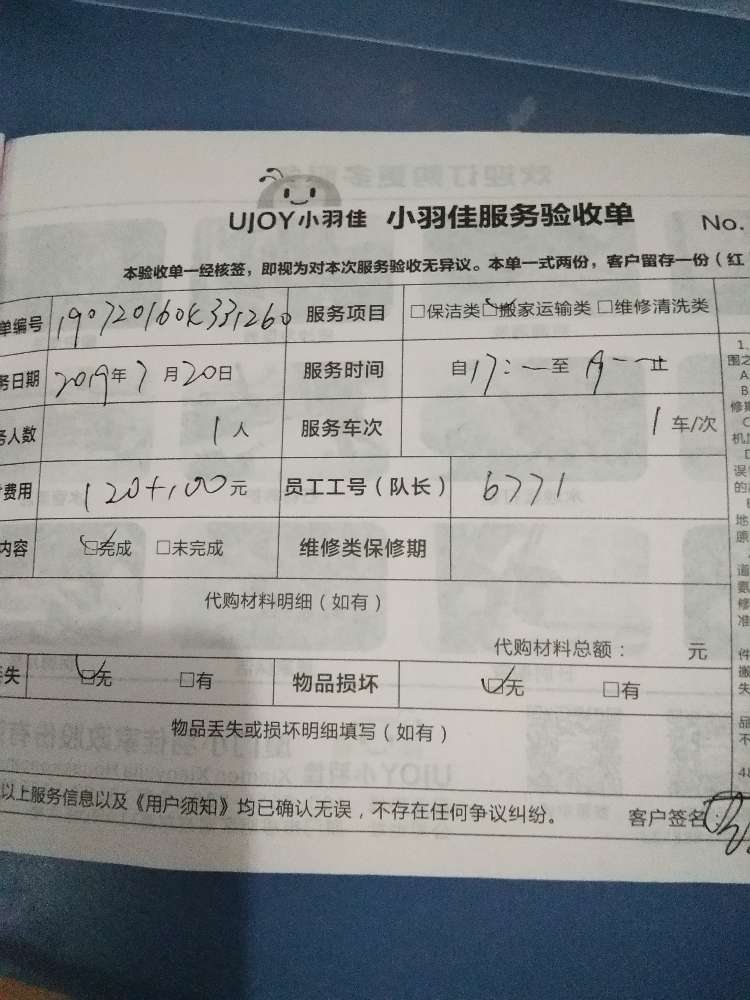 UJOY小羽佳 小羽佳服务验收单 No.
本验收单一经核签，即视为对本次服务验收无异议。本单一式两份，客户留存一份（红
单编号 190720160K331260 服务项目 □保洁类 ☑搬家运输类 □维修清洗类
务日期 2019年7月20日 服务时间 自17:一至 一止
务人数 1人 服务车次 1车/次
费用 120+100元 员工工号（队长） 6771
内容 ☑完成 □未完成 维修类保修期
代购材料明细（如有）
代购材料总额： 元
丢失 ☑无 □有 物品损坏 ☑无 □有
物品丢失或损坏明细填写（如有）
以上服务信息以及《用户须知》均已确认无误，不存在任何争议纠纷。 客户签名：